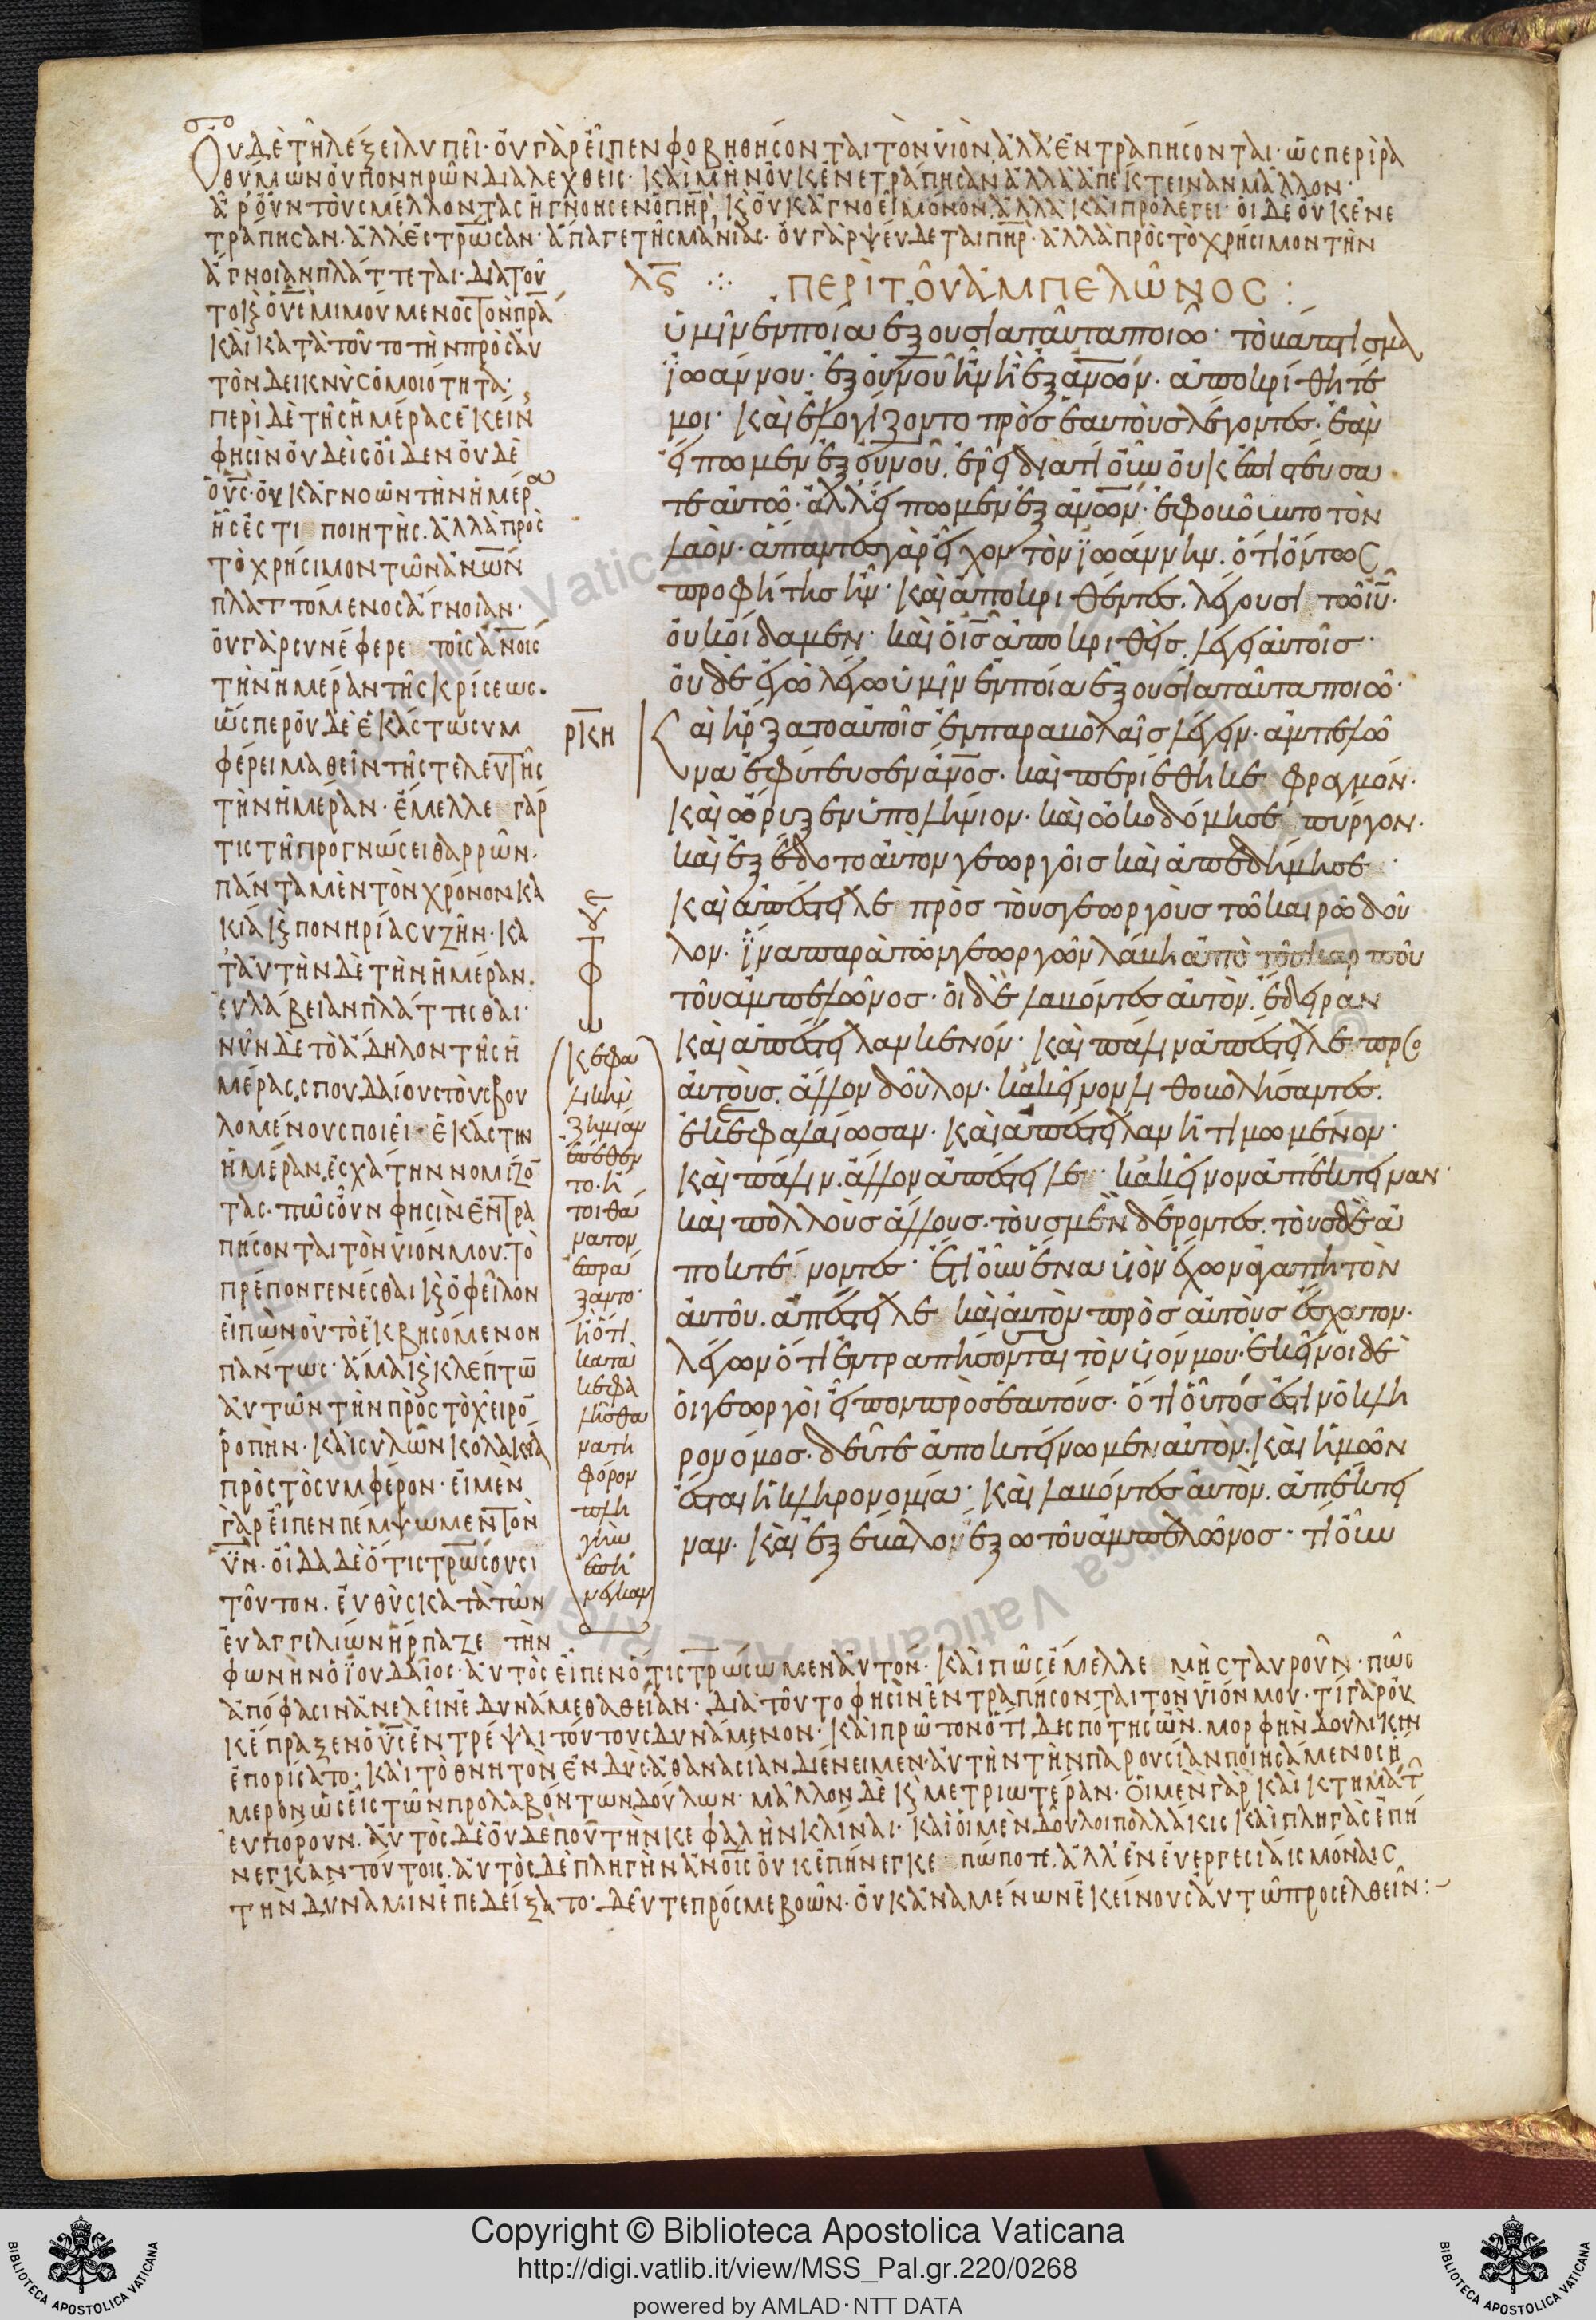 Οὐδὲ τῇ λέξει λυπεῖ· οὐ γὰρ εἶπεν φοβηθήσονται τὸν υἱὸν ἀλλ' ἐντραπήσονται· ὥσπερ ἰ ῥα
θύμων οὐ πονηρῶν διαλεχθείς· καὶ μὴν οὐκ ἐνετράπησαν ἀλλὰ ἀπέκτειναν μᾶλλον·
ἆρ' οὖν τοὺς μέλλοντας ἠγνόησεν ὁ πηρ· κ οὐκ ἀγνοεῖ μόνον. ἀλλὰ καὶ προλέγει· οἱ δὲ οὐκ ἐνε
τράπησαν. ἀλλ' ἐστρωσαν· ἄπαγε τῆς μανίας· οὐ γὰρ ψεύδεται πηρ· ἀλλὰ πρὸς τὸ χρήσιμον τὴν
ἄγνοιαν πλάττεται· διὰ τοῦ
το κ ουσ μιμούμενος τὸν πρα
καὶ κατὰ τοῦτο τὴν πρὸς αὐ
τὸν δεικνὺς ὁμοιότητα·
περὶ δὲ τῆς ἡμέρας ἐκείν
φησὶν οὐδεὶς οἶδεν οὐδὲ
ὁ υσ· οὐκ ἀγνοῶν τὴν ἡμέρα
ἧς ἐστι ποιητής. ἀλλὰ πρὸς
τὸ χρήσιμον τῶν ανων
πλαττόμενος ἄγνοιαν·
οὐ γὰρ συνέφερε τοῖς ανοις
τὴν ἡμέραν τῆς κρίσεως.
ὥσπερ οὐδὲ ἑκάστῳ συμ
φέρει μαθεῖν τῆς τελευτῆς
τὴν ἡμέραν· ἔμελλε γάρ
τις τῇ προγνώσει θαρρῶν·
πάντα μὲν τὸν χρόνον κα
κίᾳ κ πονηρίᾳ συζῆν· κα
τ' αὐτὴν δὲ τὴν ἡμέραν.
εὐλάβειαν πλάττεσθαι·
νῦν δὲ τὸ ἄδηλον τῆς ἡ
μέρας. σπουδαίους τοὺς βου
λομένους ποιεῖ· ἑκάστην
ἡμέραν. ἐσχάτην νομίζο
τας. πῶς οὖν φησὶν ἐντρα
πήσονται τὸν υἱόν μου· τὸ
πρέπον γενέσθαι κ ὀφεῖλον
εἰπὼν οὐ τὸ ἐκβησόμενον
πάντως· ἅμα κ κλέπτω
αὐτῶν τὴν πρὸς τὸ χεῖρο
ῥοπήν· καὶ συλῶν κολακία
πρὸς τὸ συμφέρον· εἰ μὲν
γὰρ εἶπεν πέμψωμεν τὸν
υν. οἶδα δὲ ὅτι στρωσουσι
τοῦτον. εὐθὺς κατὰ τῶν
εὐαγγελίων ἥρπαζε τὴν
φωνὴν ὁ ἰουδαῖος· αὐτὸς εἶπεν ὅτι στρώσωμεν αὐτόν· καὶ πῶς ἔμελλε μὴ σταυροῦν· πῶς
ἀπόφασιν ἀνελεῖν ἐδυνάμεθα θείαν· διὰ τοῦτο φησὶν ἐντραπήσονται τὸν υἱόν μου· τί γὰρ οὐ
κ ἔπραξεν ὁ υσ ἐντρέψαι τούτους δυνάμενον· καὶ πρῶτον ὅτι δεσπότης ὢν. μορφὴν δουλικὴν
ἐπορίσατο· καὶ τὸ θνητὸν ἐνδὺς. ἀθανασίαν διένειμεν· αὐτὴν τὴν παρουσίαν ποιησάμενος ἥ
μερον ὡς εἷς τῶν προλαβόντων δούλων· μᾶλλον δὲ κ μετριωτέραν· οἱ μὲν γὰρ καὶ κτημάτ
εὐπόρουν. αὐτὸς δὲ οὐδὲ ποῦ τὴν κεφαλὴν κλίναι· καὶ οἱ μὲν δοῦλοι πολλάκις καὶ πληγὰς ἐπή
νεγκαν τούτοις. αὐτὸς δὲ πληγὴν ανοις οὐκ ἐπήνεγκε πώποτε. ἀλλ' ἐν εὐεργεσίαις μόναις
τὴν δύναμιν ἐπεδείξατο· δεῦτε πρός με βοῶν· οὐκ ἀναμένων ἐκείνους αὐτῷ προσελθεῖν:
λϛ ∴ ΠΕΡΙ ΤΟΥ ΑΜΠΕΛΩΝΟΣ :
ὑμῖν ἐν ποία ἐξουσία ταῦτα ποιῶ· τὸ βάπτισμα
ἰωάννου· ἐξ ουνου ἦν ἢ ἐξ ανων· ἀποκρίθητέ
μοι· καὶ ἐλογίζοντο πρὸς ἑαυτοὺς λέγοντες· ἐὰν
εἴπωμεν ἐξ ουνου. ἐρεῖ διατί οὖν οὐκ ἐπιστεύσα
τε αὐτῶ· ἀλλ' εἴπωμεν ἐξ ανων· ἐφοβοῦντο τὸν
λαόν· ἅπαντες γὰρ εἶχον τὸν ἰωάννην. ὅτι ὄντως
προφήτης ἦν· καὶ ἀποκριθέντες. λέγουσι τῶ ιυ·
οὐκ οἴδαμεν· καὶ ὁ ισ ἀποκριθεὶς. λέγει αὐτοῖς·
οὐδὲ ἐγὼ λέγω ὑμῖν ἐν ποία ἐξουσία ταῦτα ποιῶ·
ρκη Καὶ ἤρξατο αὐτοῖς ἐν παραβολαῖς λέγειν· ἀμπελῶ
να ἐφύτευσεν ανος· καὶ περιέθηκε φραγμόν·
καὶ ὤρυξεν ὑπολήνιον· καὶ ὠκοδόμησε πύργον·
καὶ ἐξέδοτο αὐτὸν γεωργοῖς καὶ ἀπεδήμησε·
καὶ ἀπέστειλε πρὸς τοὺς γεωργοὺς τῶ καιρῶ δοῦ
λον· ἵνα παρὰ τῶν γεωργῶν λάβη ἀπὸ τοῦ καρποῦ
τοῦ ἀμπελῶνος· οἱ δὲ λαβόντες αὐτὸν. ἔδειραν
καὶ ἀπέστειλαν κενόν· καὶ πάλιν ἀπέστειλε προς
αὐτοὺς. ἄλλον δοῦλον· κἀκεῖνον λιθοβολήσαντες.
ἐκεφαλαίωσαν· καὶ ἀπέστειλαν ἠτιμωμένον·
καὶ πάλιν. ἄλλον ἀπέστειλε· κἀκεῖνον ἀπέκτειναν·
καὶ πολλοὺς ἄλλους· τοὺς μὲν δέροντες. τοὺς δὲ ἀ
ποκτένοντες· ἔτι οὖν ἕνα υἱὸν ἔχων ἀγαπητὸν
αὐτοῦ. ἀπέστειλε καὶ αὐτὸν πρὸς αὐτοὺς ἔσχατον.
λέγων ὅτι ἐντραπήσονται τὸν υἱόν μου· ἐκεῖνοι δὲ
οἱ γεωργοὶ εἶπον πρὸς ἑαυτούς· ὅτι οὗτός ἐστιν ὁ κλη
ρονόμος. δεῦτε ἀποκτείνωμεν αὐτὸν. καὶ ἡμῶν
ἔσται ἡ κληρονομία· καὶ λαβόντες αὐτὸν. ἀπέκτει
ναν· καὶ ἐξέβαλον ἔξω τοῦ ἀμπελῶνος· τί οὖν
κεφα
λικὴν
ζημίαν
ἐπέθεν
το· ἢ
τοι θά
νατον
ἐπρά
ξαντο·
ἢ ὅτι
κατὰ
κεφα
λῆς θα
νατη
φόρον
πλη
γὴν
ἐπή
νεγκαν
Copyright © Biblioteca Apostolica Vaticana
http://digi.vatlib.it/view/MSS_Pal.gr.220/0268
powered by AMLAD·NTT DATA
BIBLIOTECA APOSTOLICA VATICANA
BIBLIOTECA APOSTOLICA VATICANA